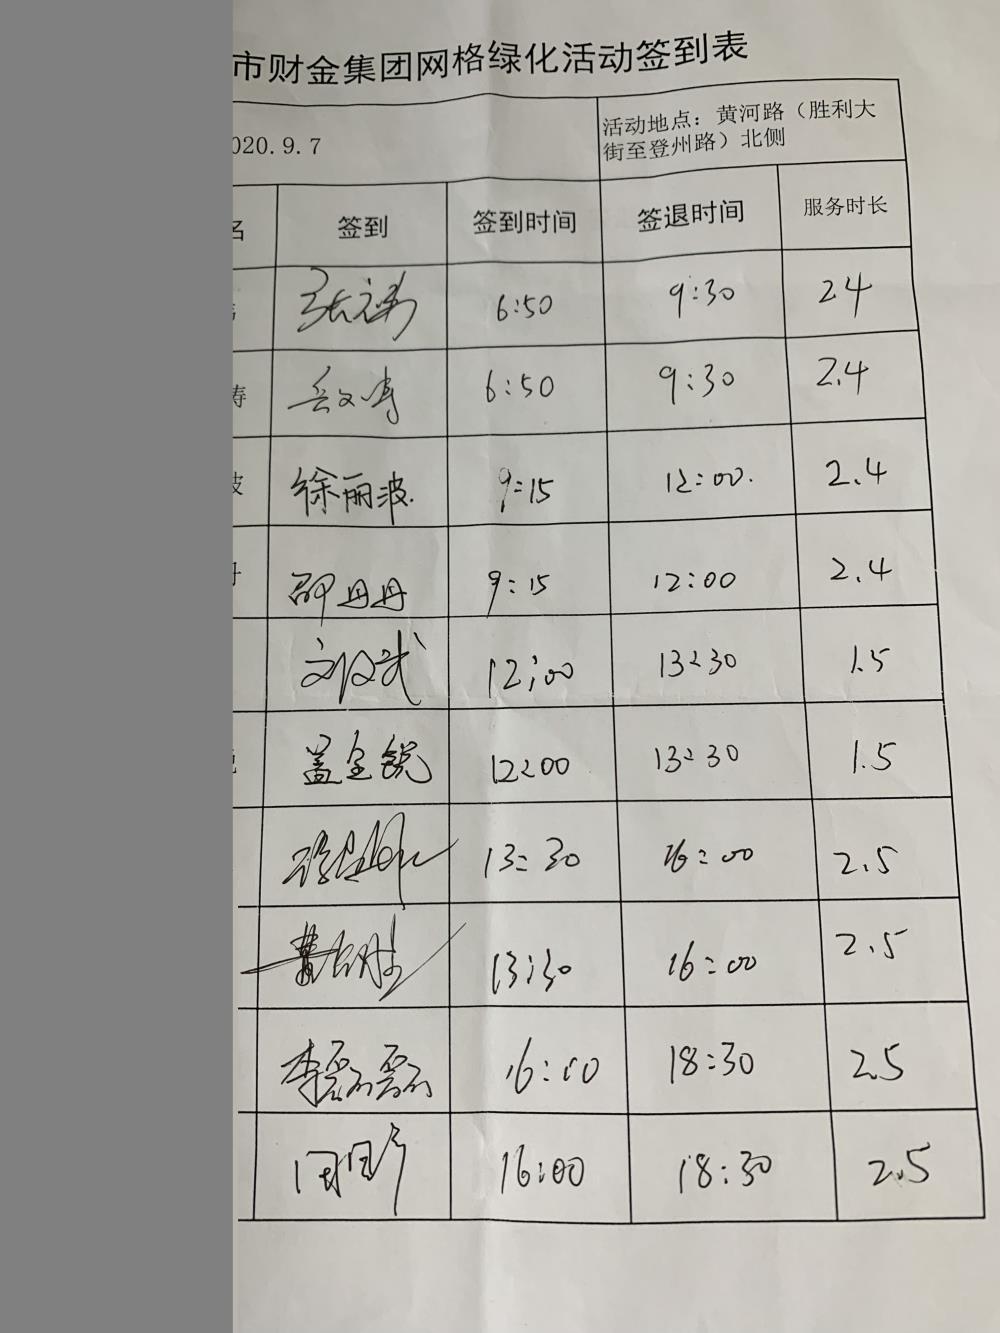 市财金集团网格绿化活动签到表
020.9.7 活动地点：黄河路（胜利大
街至登州路）北侧
名 签到 签到时间 签退时间 服务时长
6:50 9:30 24
涛 岳文涛 6:50 9:30 2.4
波 徐丽波 9:15 12:00 2.4
丹 邵丹丹 9:15 12:00 2.4
12:00 13:30 1.5
锐 盖金锐 12:00 13:30 1.5
13:30 16:00 2.5
13:30 16:00 2.5
李磊磊 16:00 18:30 2.5
16:00 18:30 2.5